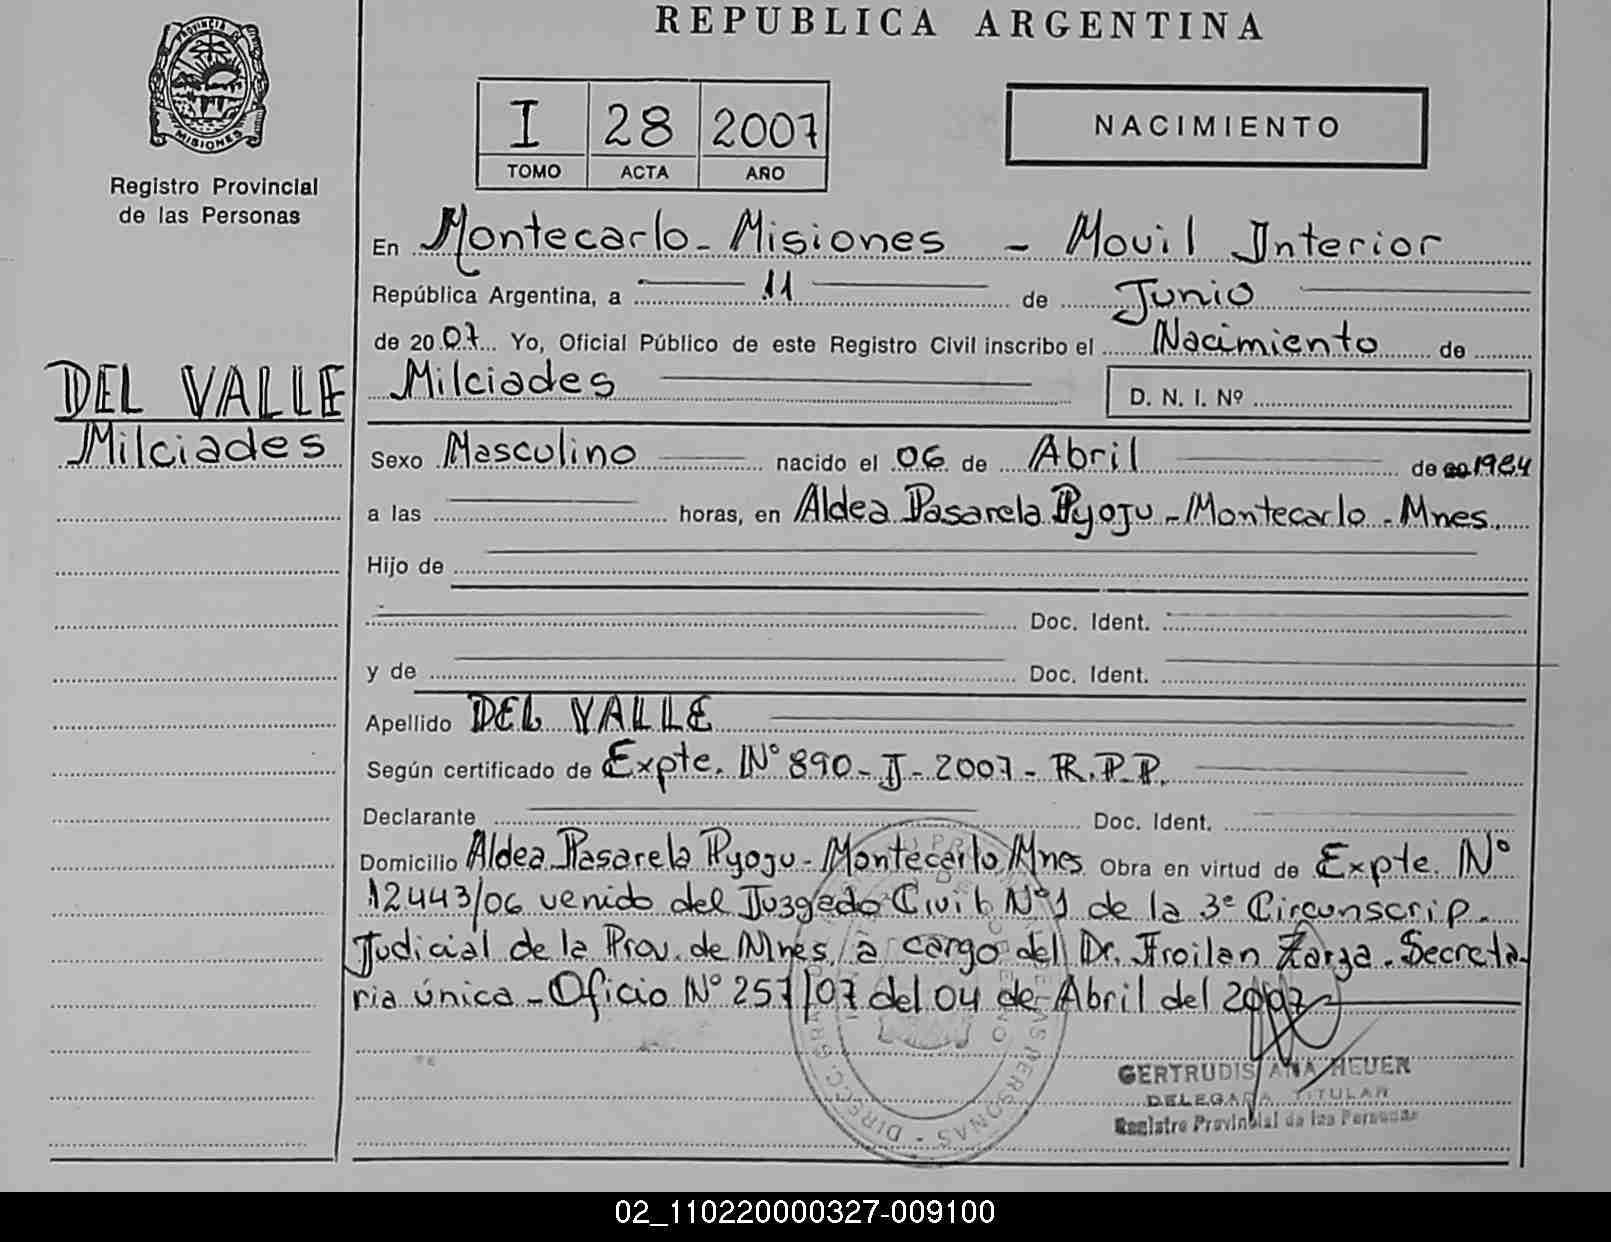 PROVINCIA DE
MISIONES
Registro Provincial
de las Personas
DEL VALLE
Milciades
REPUBLICA ARGENTINA
I 28 2007
TOMO ACTA AÑO
NACIMIENTO
En Montecarlo - Misiones - Movil Interior
República Argentina, a 11 de Junio
de 20 07 Yo, Oficial Público de este Registro Civil inscribo el Nacimiento de
Milciades D. N. I. Nº
Sexo Masculino nacido el 06 de Abril de 1984
a las horas, en Aldea Pasarela Pyoju - Montecarlo - Mnes.
Hijo de
Doc. Ident.
y de Doc. Ident.
Apellido DEL VALLE
Según certificado de Expte. Nº 890 - J - 2007 - R.P.P.
Declarante Doc. Ident.
Domicilio Aldea Pasarela Pyoju - Montecarlo, Mnes Obra en virtud de Expte. Nº
12443/06 venido del Juzgado Civil Nº1 de la 3ª Circunscrip.
Judicial de la Prov. de Mnes, a cargo del Dr. Froilan Zarza. Secreta-
ria única - Oficio Nº 257/07 del 04 de Abril del 2007
GERTRUDIS ANA HEUER
DELEGADA TITULAR
Registro Provincial de las Personas
02_110220000327-009100